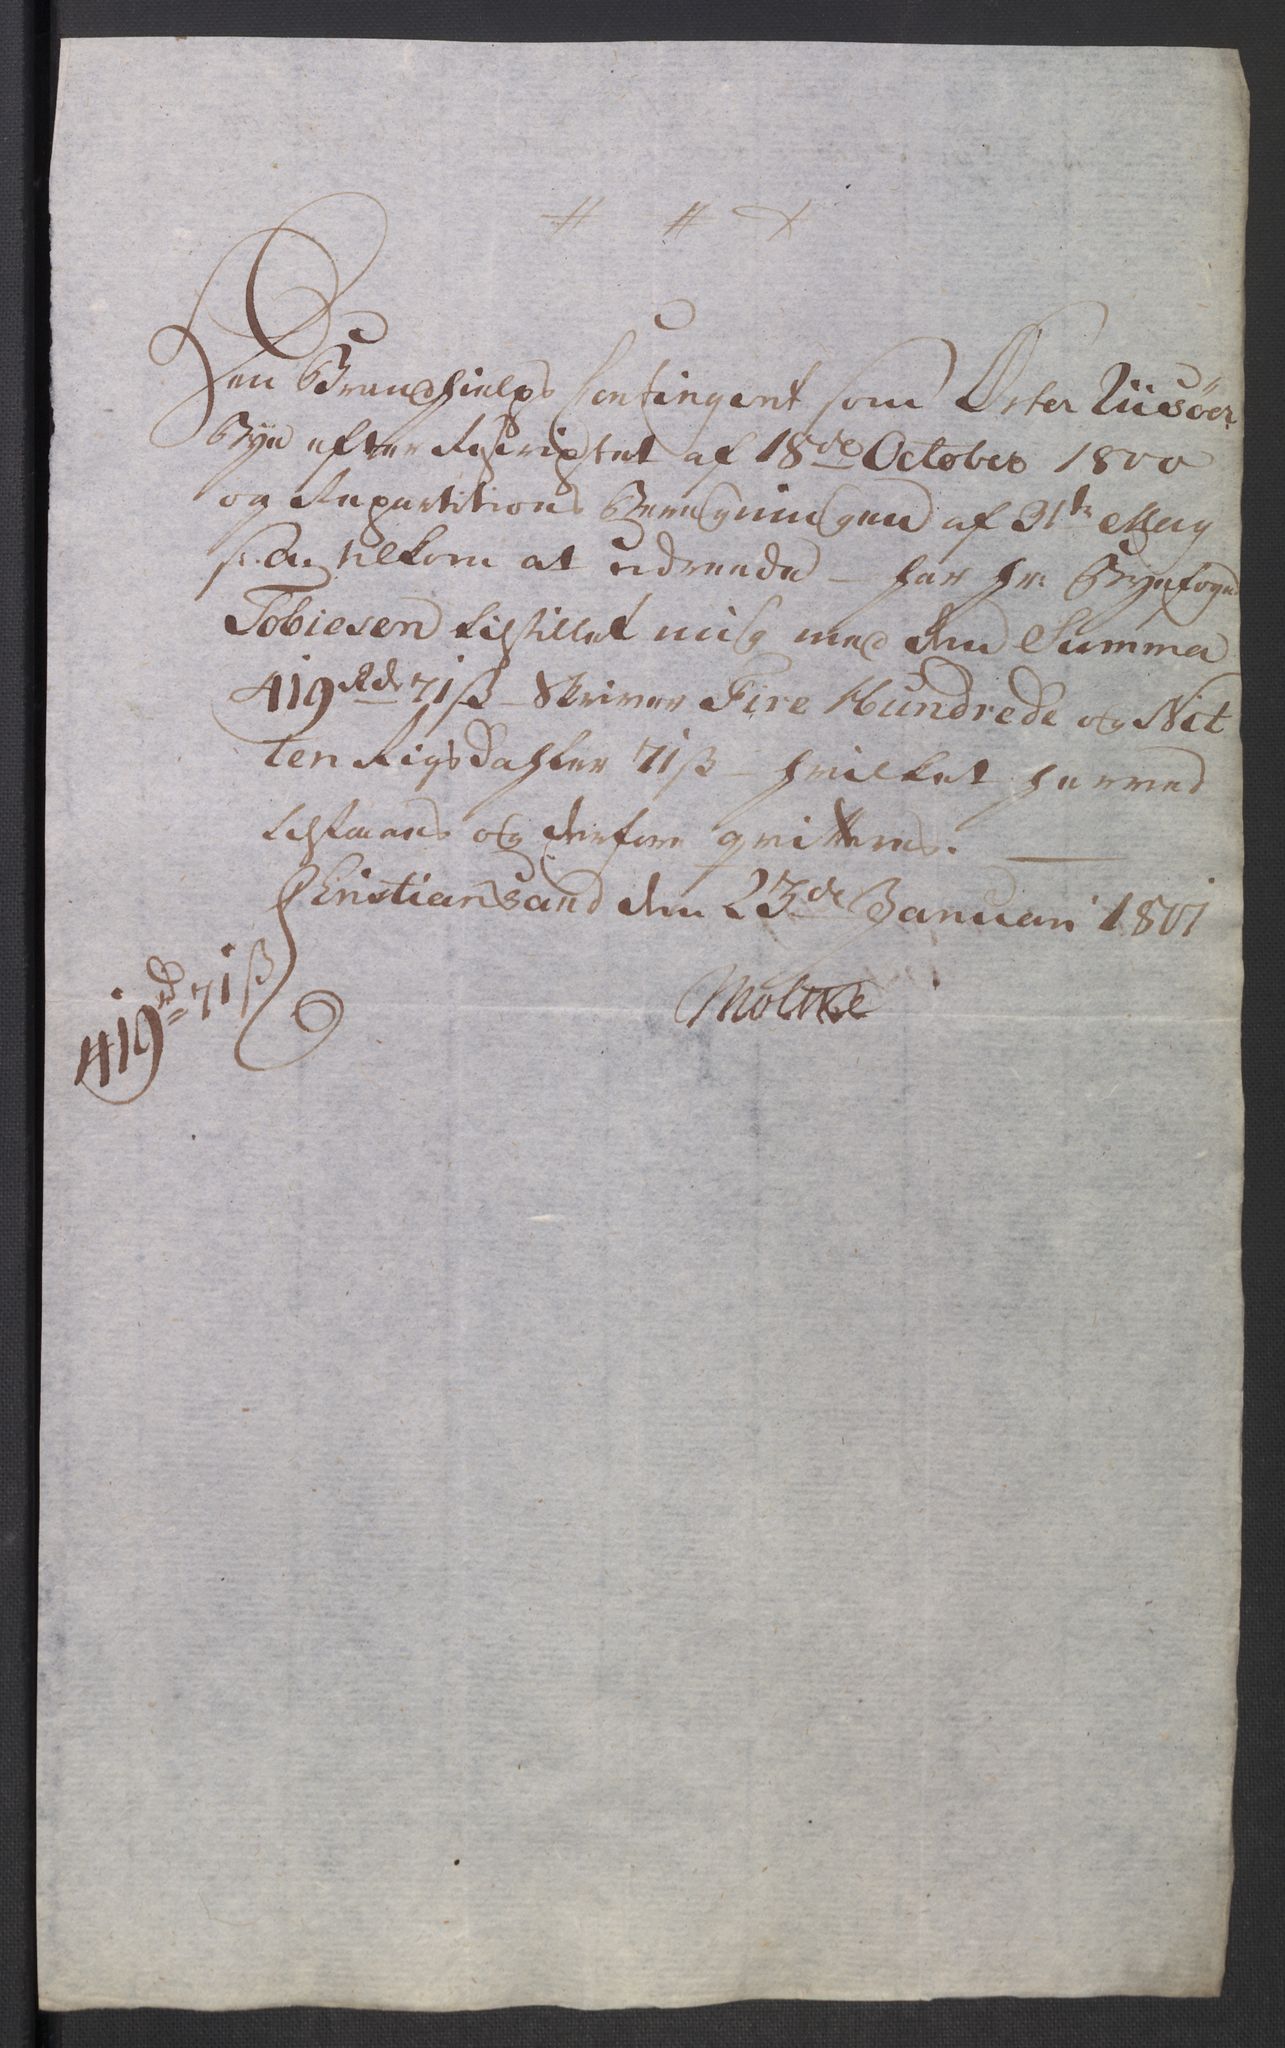 Den Brandhielps Contingent som Öster Riisöer
Bye efter Rescriptet af 18de October 1800
og Repartitions Beregningen af 31te May
s. A. tilkom at udreede – har Hr. Byefoged
Tobiesen tilstillet mig med den Summa
419 Rdr 71 ß – Skriver Fire Hundrede og Nit
ten Rigsdahler 71 ß – hvilket herved
tilstaaes og derfore qvitteres.
Christiansand den 23de Januari 1801
419 rd 71 ß
Moltke